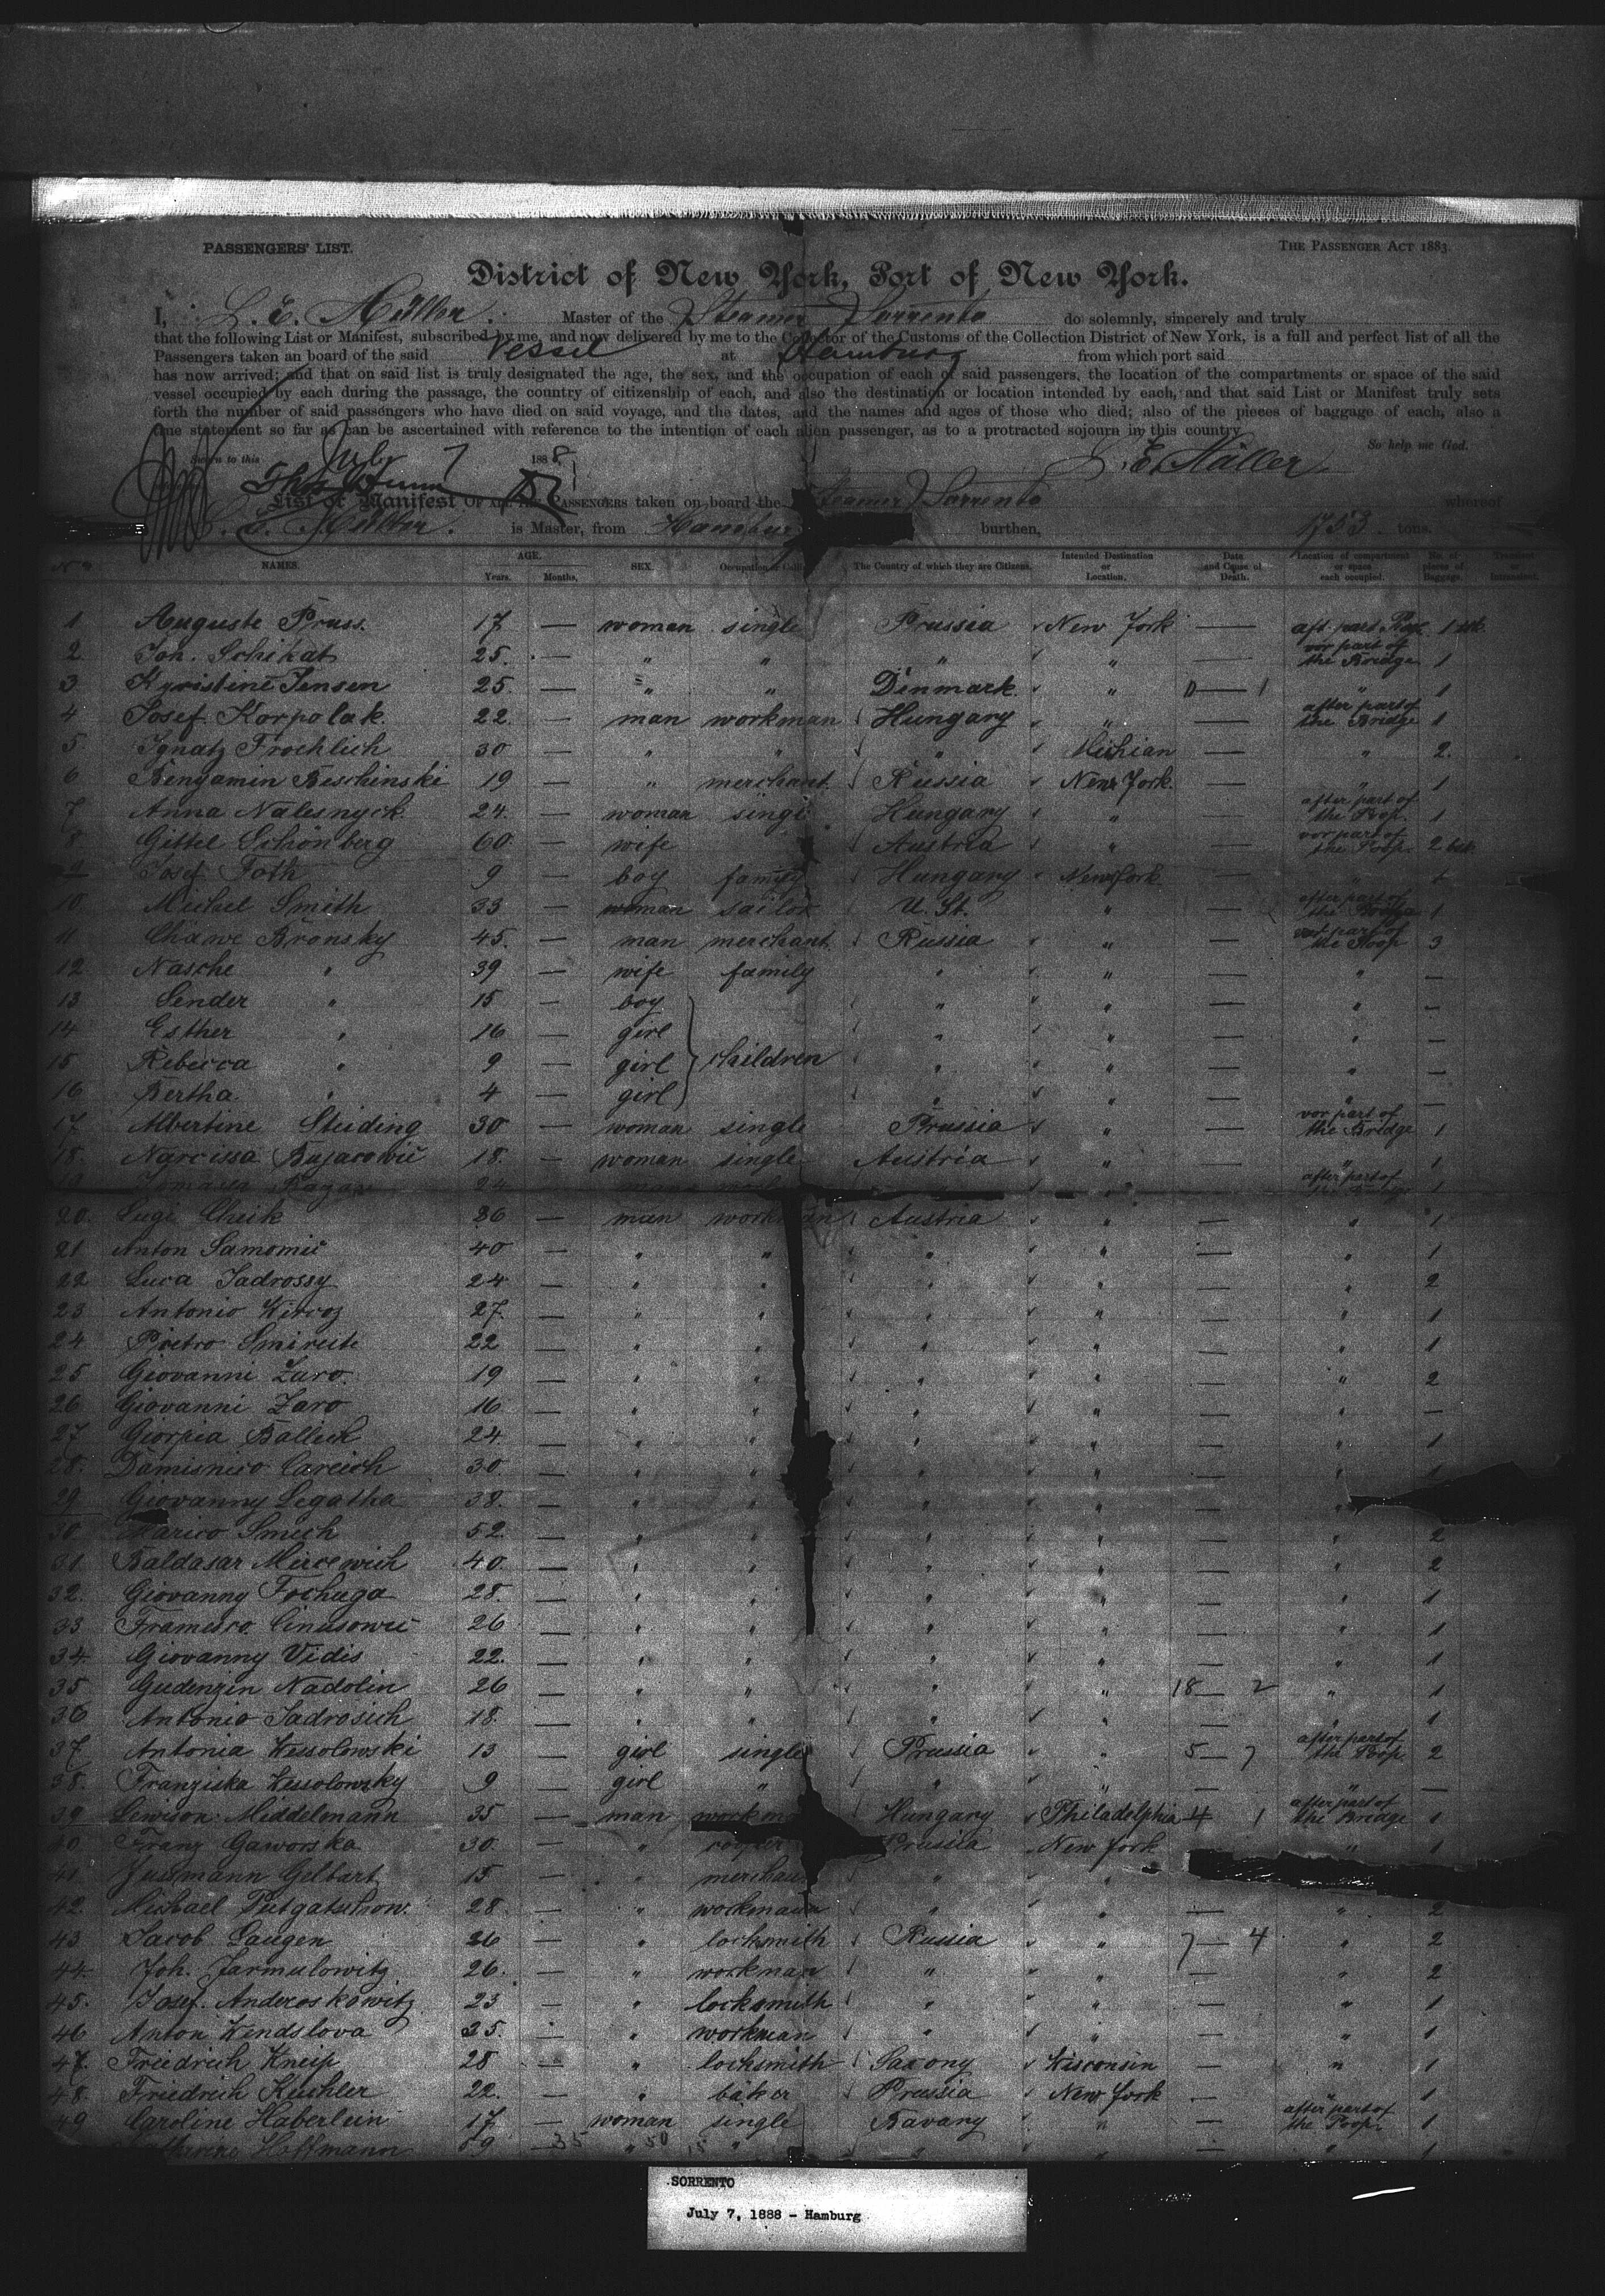 PASSENGERS' LIST.
THE PASSENGER ACT 1883.
District of New York, Port of New York.
I, L. E. Müller. Master of the Steamer Sorrento do solemnly, sincerely and truly
that the following List or Manifest, subscribed by me, and now delivered by me to the Collector of the Customs of the Collection District of New York, is a full and perfect list of all the
Passengers taken an board of the said Vessel at Hamburg from which port said
has now arrived; and that on said list is truly designated the age, the sex, and the occupation of each of said passengers, the location of the compartments or space of the said
vessel occupied by each during the passage, the country of citizenship of each, and also the destination or location intended by each, and that said List or Manifest truly sets
forth the number of said passengers who have died on said voyage, and the dates, and the names and ages of those who died; also of the pieces of baggage of each, also a
true statement so far as can be ascertained with reference to the intention of each alien passenger, as to a protracted sojourn in this country.
So help me God.
Sworn to this July 7 1888
L. E. Müller
List or Manifest OF ALL THE PASSENGERS taken on board the Steamer Sorrento whereof
L. E. Müller. is Master, from Hamburg burthen, 1753 tons.
No. NAMES. AGE. Years. Months. SEX. Occupation or Calling The Country of which they are Citizens. Intended Destination or Location. Date and Cause of Death. Location of compartment or space each occupied. No. of pieces of Baggage. Transient or Intransient.
1 Auguste Pruss. 17 — woman single Prussia New York — aft. part Poop 1
2 Joh. Schikat 25. — " " " " — vor part of the Bridge 1
3 Kyristine Jensen 25. — " " Denmark. " 0 — 1 " 1
4 Josef Korpolak. 22. — man workman Hungary " — after part of the Bridge 1
5. Ignatz Frochlich 30 — " " " Michian — " 2.
6 Benyamin Beschinski 19 — " merchant. Russia New York. — " 1
7 Anna Nalesnyck. 24. — woman singl Hungary " — after part of the Poop. 1
8 Gittel Schönberg 60. — wife Austria " — vor part of the Poop. 2
9 Josef Toth 9 — boy family Hungary New York — 1
10 Michel Smith 33 — woman sailor U. St. " — after part of the Bridge 1
11 Chawe Bronsky 45. — man merchant. Russia " — vor part of the Poop 3
12 Nasche " 39 — wife family " " — " —
13 Sender " 15 — boy " " — " —
14 Esther " 16 — girl " " — " —
15 Rebecca " 9 — girl children " " — " —
16 Bertha " 4 — girl " " — " —
17 Albertine Steiding 30 — woman single Prussia " — vor part of the Bridge 1
18. Narcissa Bujacowic 18. — woman single Austria " — " 1
19 24 after part of 1
20. Luge Cheik 36 — man workman Austria " — " 1
21 Anton Samomic 40 — " " " " — " 1
22 Luca Jadrossy 24 — " " " " — " 2
23 Antonio Kircoz 27. — " " " " — " 1
24 Pietro Smirette 22 — " " " " — " 1
25 Giovanni Zuro. 19 — " " " " — " 2
26 Giovanni Zaro 16 — " " " " — " —
27 Giorpia Ballich 24. — " " " " — " 1
28. Damisnico Careich 30. — " " " " — " 1
29 Giovanny Legatha 38. — " " " " — "
30 Marico Smich 52. — " " " " — " 2
31. Baldasar Mircewich 40. — " " " " — " 2
32. Giovanny Fochuga 28. — " " " " — " 1
33 Framesco Cinusowic 26 — " " " " — " 1
34. Giovanny Vidis 22. — " " " " — " 1
35 Gudenzin Nadolin 26 — " " " " 18 — 2 " 1
36 Antonio Jadrosich 18. — " " " " — " 1
37 Antonia Kessolowski 13 — girl single Prussia " 5 — 7 after part of the Poop 2
38. Franziska Kessolowsky 9 — girl " " " — " —
39 Lewison Middelmann 35 — man workman Hungary Philadelphia 4 1 after part of the Bridge 1
40 Franz Gaworska 30. — " Prussia New York — " 1
41 Gelbart 15 — " merchan " "
42. Michael 28. — " workmann " " — " 2
43 Jacob Laugen 26 — " locksmith Russia " 7 — 4 " 2
44. Joh. Jarmulowitz 26. — " workman " " — " 2
45. Josef Anderoskowitz 23 — " locksmith " " — " 1
46 Anton Kendslova 25. — " workman " " — " 1
47. Friedrich Kneip 28 — " locksmith Saxony Wisconsin — " 1
48. Friedrich Kuchler 22. — " baker Prussia New York — " 1
49 Caroline Haberlein 17 — woman single Bavary " — after part of the Poop. 1
Hoffmann 59 — 35 " 50 15 " " " — " 1
SORRENTO
July 7, 1888 - Hamburg